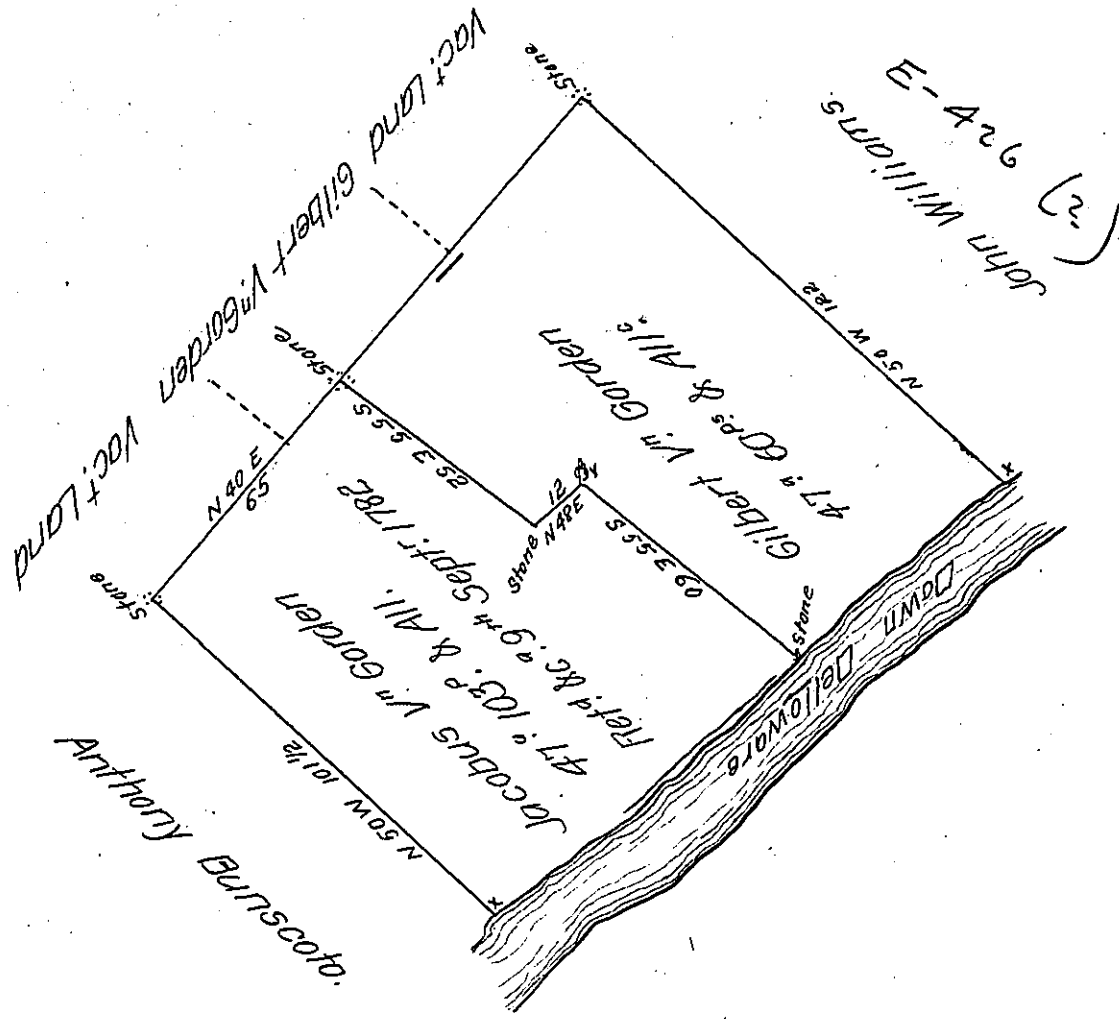 E-426 (2)
John Williams
Vac.t Land
Gilbert V.n Gorden
Vac.t Land
Stone
N 50 W 122
Gilbert V.n Gorden
47.a 60 ps & All.c
Stone
N 40 E
65
S 55 E 52
Stone
12
N 48 E
S 55 E 60
Stone
Stone
Jacobus V.n Gorden
47.a 103 P. & All.
Ret.d &c. 9th Sept.r 1782
N 50 W 101 1/2
Dellaware
Down
Anthony Bunscoto.